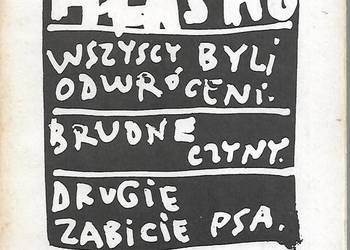 HŁASKO
WSZYSCY BYLI
ODWRÓCENI.
BRUDNE
CZYNY.
DRUGIE
ZABICIE PSA.